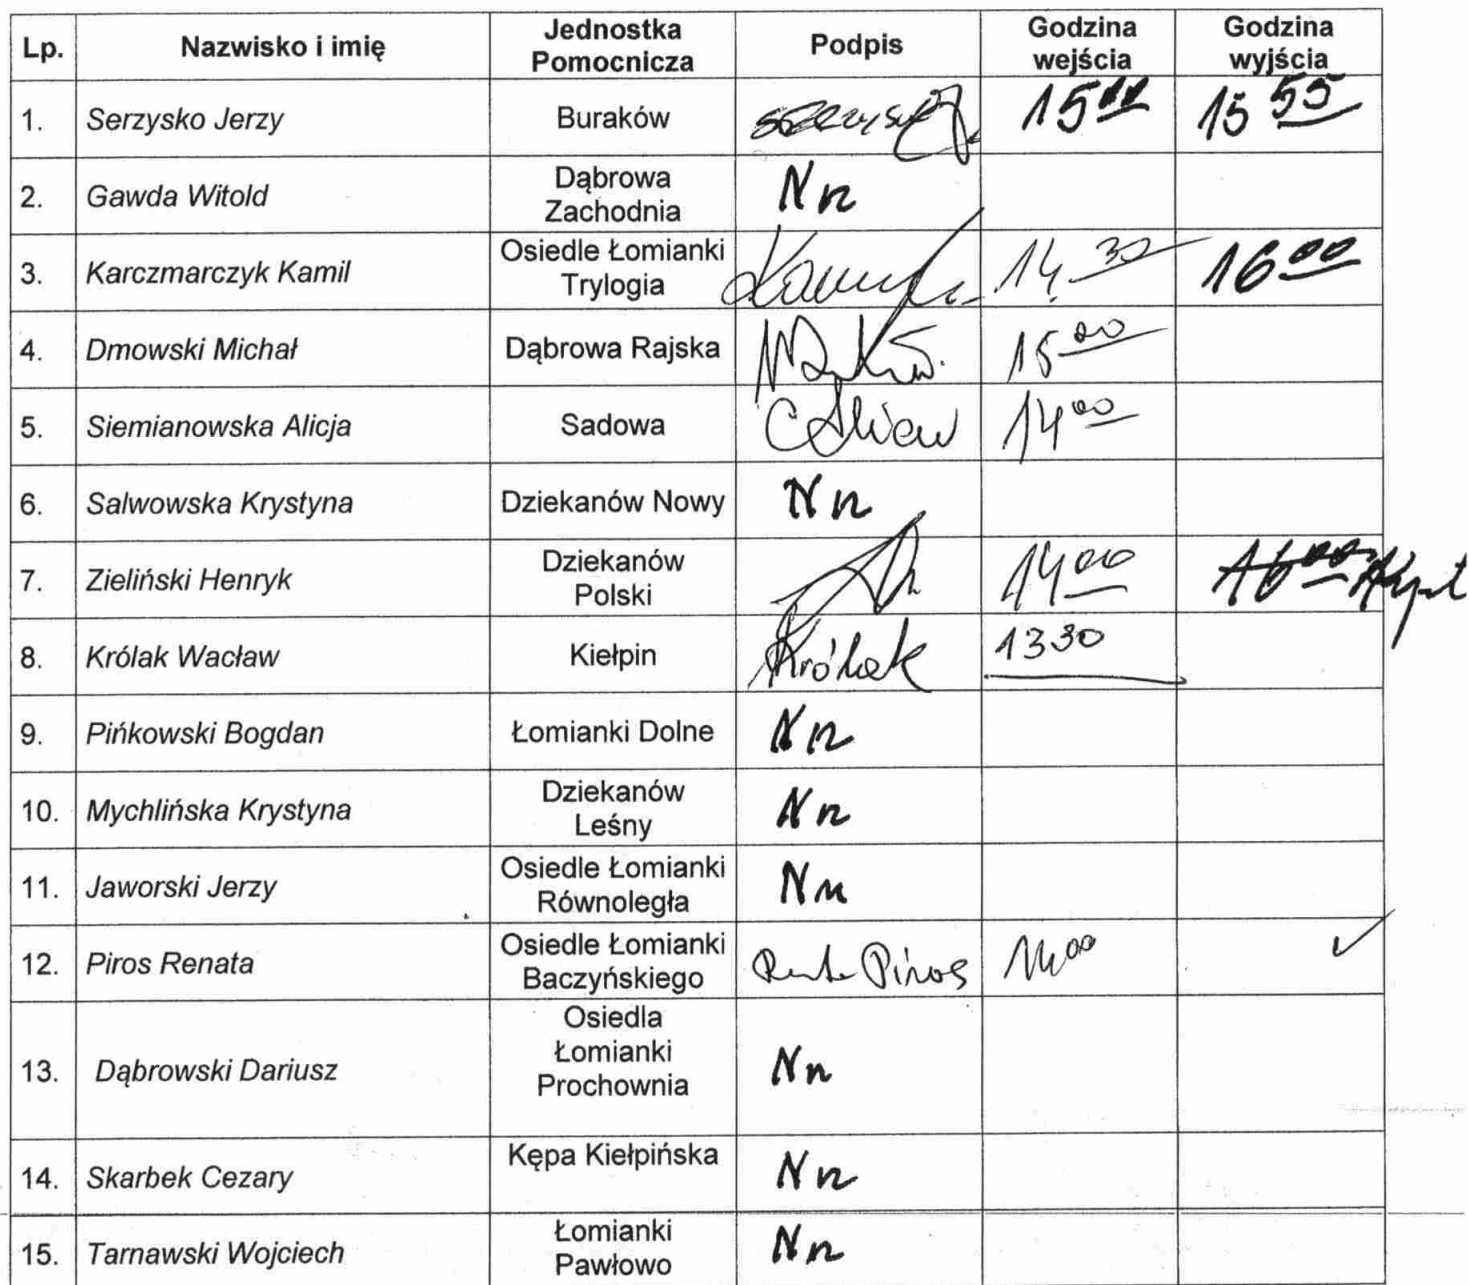 Lp. Nazwisko i imię Jednostka Pomocnicza Podpis Godzina wejścia Godzina wyjścia
1. Serzysko Jerzy Buraków 15 55
2. Gawda Witold Dąbrowa Zachodnia Nn
3. Karczmarczyk Kamil Osiedle Łomianki Trylogia 14 30 16 00
4. Dmowski Michał Dąbrowa Rajska 15 00
5. Siemianowska Alicja Sadowa 14 00
6. Salwowska Krystyna Dziekanów Nowy Nn
7. Zieliński Henryk Dziekanów Polski 14 00 16 00
8. Królak Wacław Kiełpin Królak 13 30
9. Pińkowski Bogdan Łomianki Dolne Nn
10. Mychlińska Krystyna Dziekanów Leśny Nn
11. Jaworski Jerzy Osiedle Łomianki Równoległa Nn
12. Piros Renata Osiedle Łomianki Baczyńskiego Piros 14 00
13. Dąbrowski Dariusz Osiedla Łomianki Prochownia Nn
14. Skarbek Cezary Kępa Kiełpińska Nn
15. Tarnawski Wojciech Łomianki Pawłowo Nn